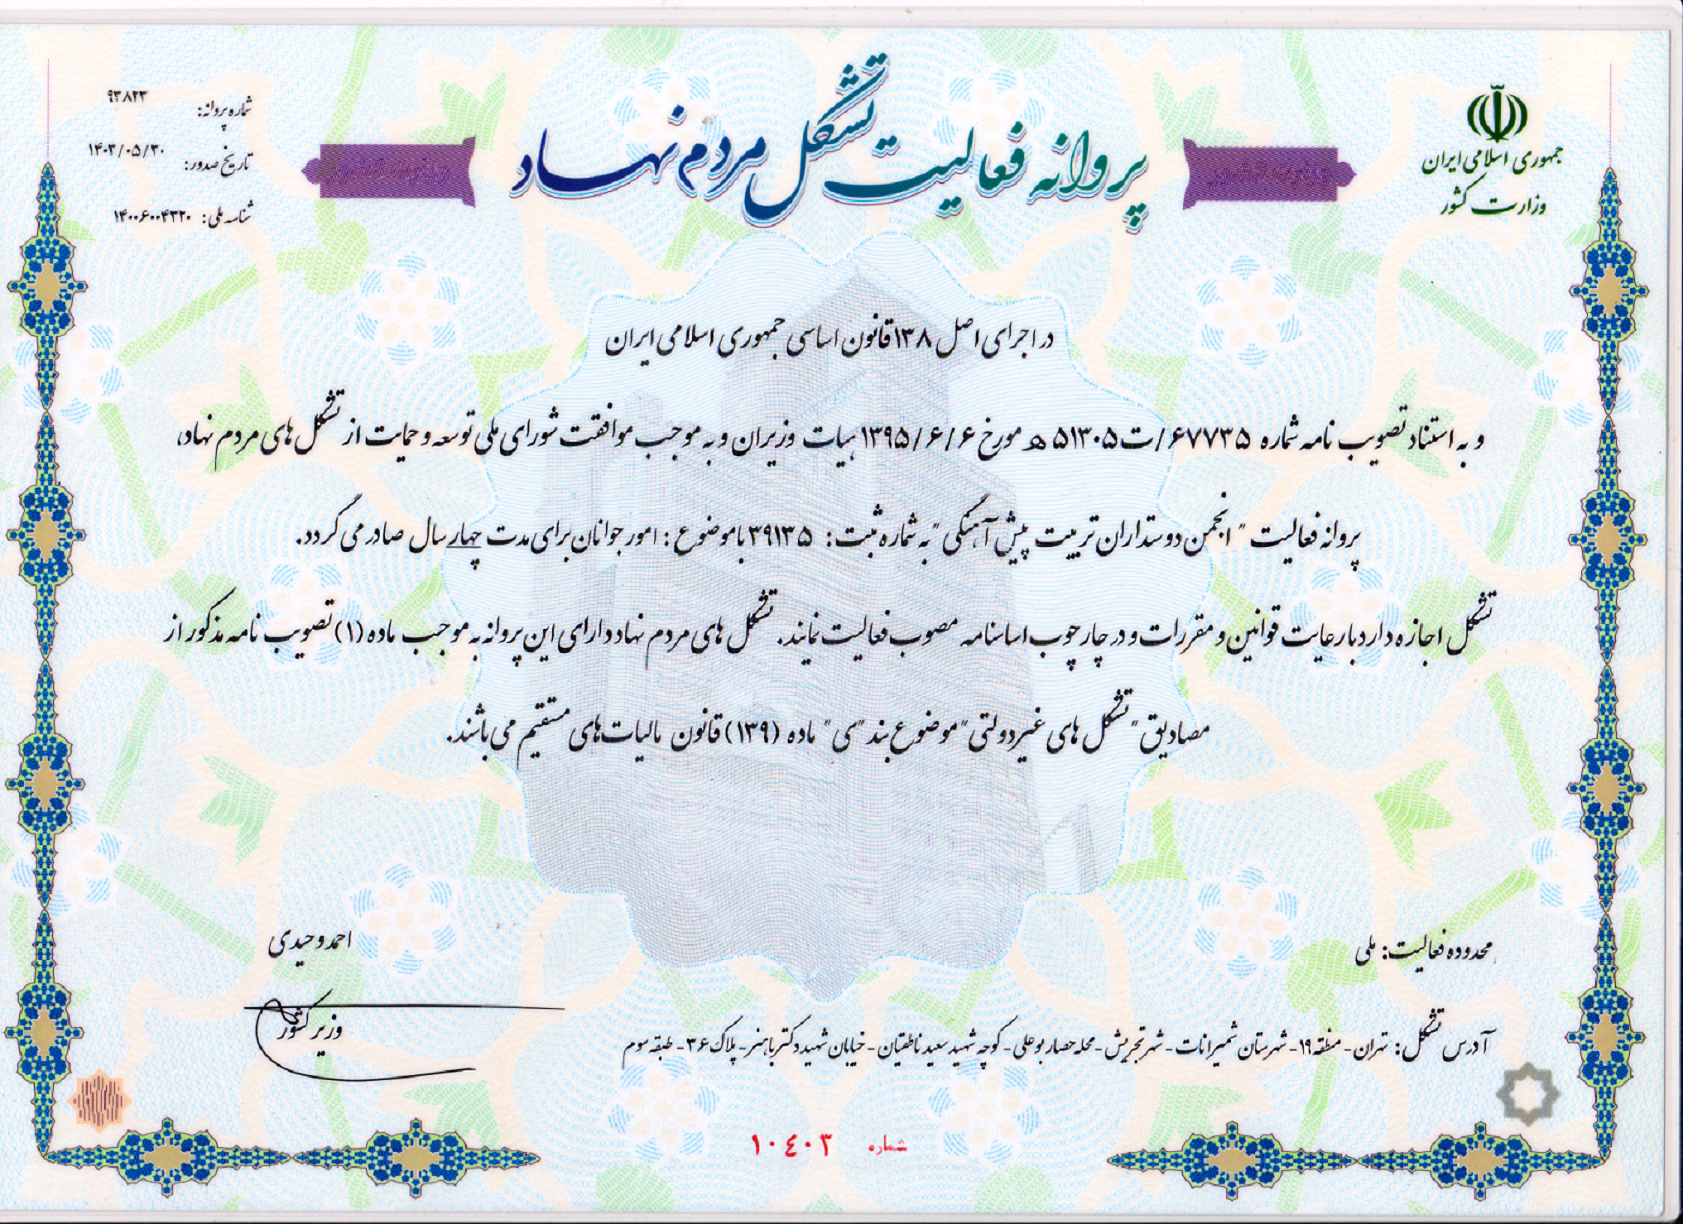 جمهوری اسلامی ایران
وزارت کشور
پروانه فعالیت تشکل مردم نهاد
شماره پروانه: ۹۳۸۲۳
تاریخ صدور: ۱۴۰۳/۰۵/۳۰
شناسه ملی: ۱۴۰۰۶۰۰۴۳۲۰
در اجرای اصل ۱۳۸ قانون اساسی جمهوری اسلامی ایران
و به استناد تصویب نامه شماره ۶۷۷۳۵/ت۵۱۳۰۵ هـ مورخ ۱۳۹۵/۶/۶ هیات وزیران و به موجب موافقت شورای ملی توسعه و حمایت از تشکل های مردم نهاد،
پروانه فعالیت " انجمن دوستداران تربیت پیش آهنگی" به شماره ثبت: ۳۹۱۳۵ با موضوع : امور جوانان برای مدت چهار سال صادر می گردد.
تشکل اجازه دارد با رعایت قوانین و مقررات و در چارچوب اساسنامه مصوب فعالیت نمایند. تشکل های مردم نهاد دارای این پروانه به موجب ماده (۱) تصویب نامه مذکور از
مصادیق "تشکل های غیردولتی" موضوع بند "ی" ماده (۱۳۹) قانون مالیات‌های مستقیم می باشند.
محدوده فعالیت: ملی
آدرس تشکل: تهران - منطقه ۱۹ - شهرستان شمیرانات - شهر تجریش - محله حصار بوعلی - کوچه شهید سعید ناطقیان - خیابان شهید دکتر باهنر - پلاک ۳۶ - طبقه سوم
احمد وحیدی
وزیر کشور
شماره ۱۰۴۰۳